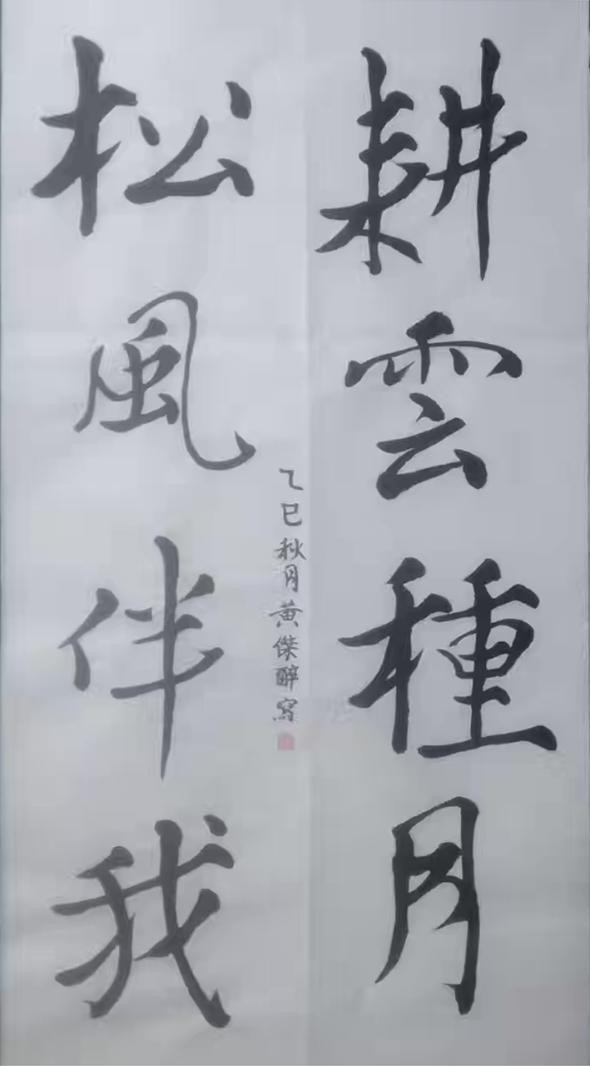 耕雲種月
松風伴我
乙巳秋月黄傑醉寫